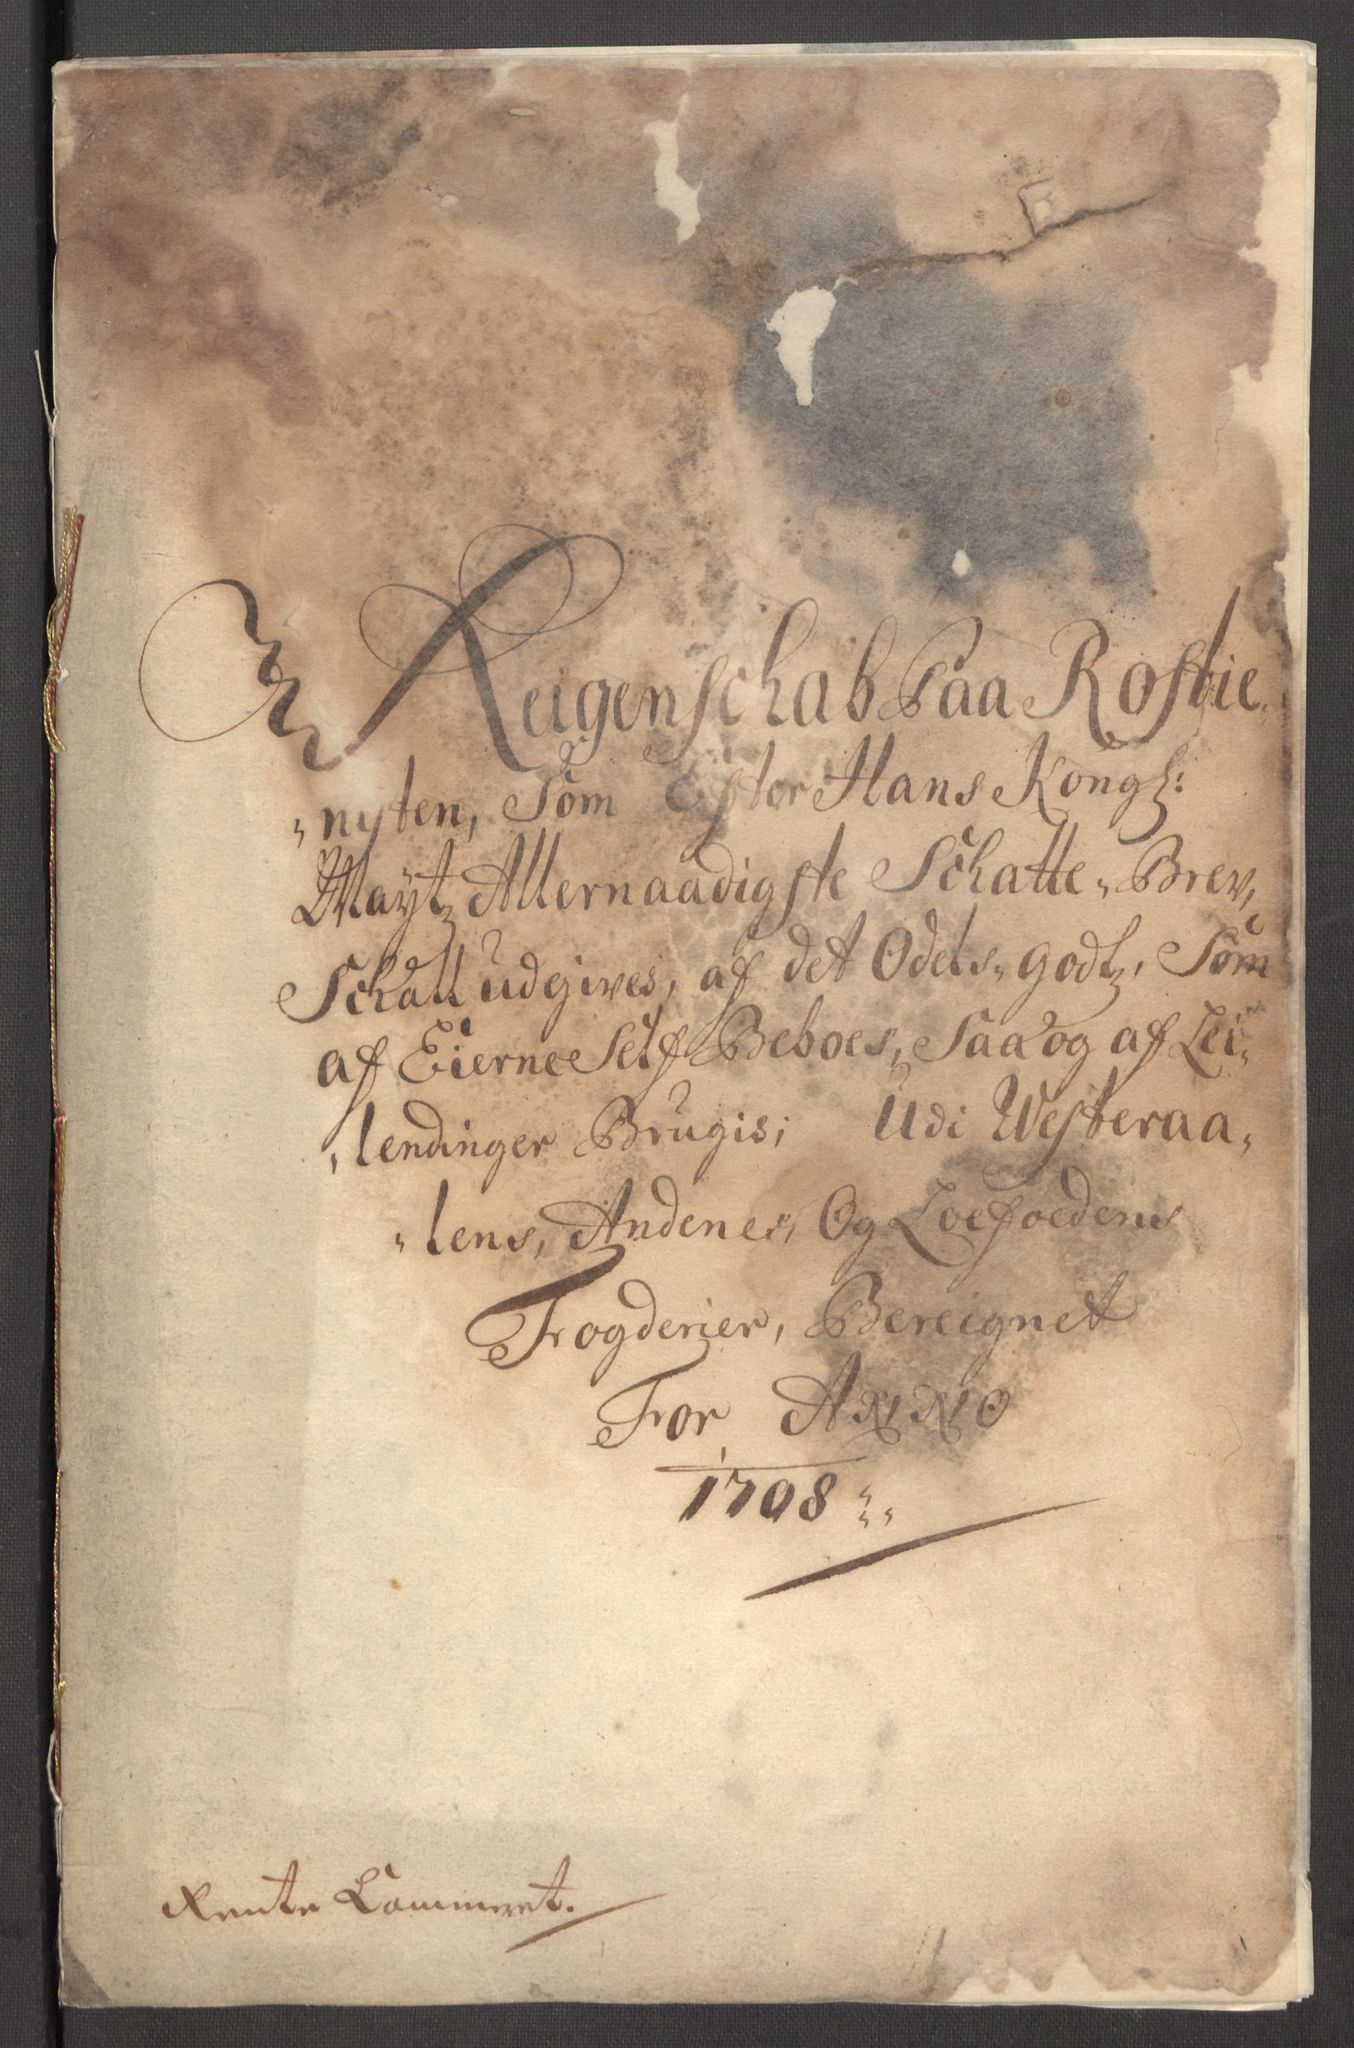 Reigenschab Paa Rostie-
„nÿten, Som Efter Hans Kongl:
Maÿtz Allernaadigste Schatte„Brev,
Schall udgives, af det Odels„godtz, Som
af Eierne Self Beboes, Saa og af Lei„
„lendinger Brugis; Udi Westeraa„
„lens, Andenes, Og Loefoedens
Fogderier, Bereignet
For ANNO
1708
Rente Cammeret.